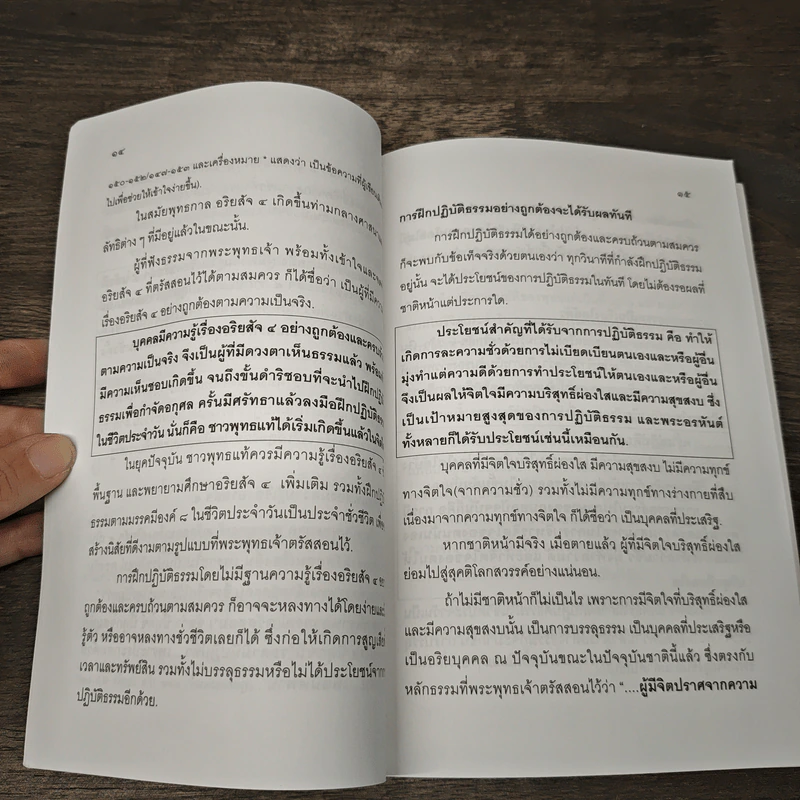 ๑๔
๑๕๐-๑๕๒/๑๔๗-๑๕๓ และเครื่องหมาย " แสดงว่า เป็นข้อความที่ผู้เขียน
ไปเพื่อช่วยให้เข้าใจง่ายขึ้น).
ในสมัยพุทธกาล อริยสัจ ๔ เกิดขึ้นท่ามกลางศาสนา
ลัทธิต่าง ๆ ที่มีอยู่แล้วในขณะนั้น.
ผู้ที่ฟังธรรมจากพระพุทธเจ้า พร้อมทั้งเข้าใจและ
อริยสัจ ๔ ที่ตรัสสอนไว้ได้ตามสมควร ก็ได้ชื่อว่า เป็นผู้ที่มี
เรื่องอริยสัจ ๔ อย่างถูกต้องตามความเป็นจริง.
บุคคลมีความรู้เรื่องอริยสัจ ๔ อย่างถูกต้องและครบ
ตามความเป็นจริง จึงเป็นผู้ที่มีดวงตาเห็นธรรมแล้ว พร้อม
มีความเห็นชอบเกิดขึ้น จนถึงขั้นดำริชอบที่จะนำไปฝึก
ธรรมเพื่อกำจัดอกุศล ครั้นมีศรัทธาแล้วลงมือฝึกปฏิบัติ
ในชีวิตประจำวัน นั่นก็คือ ชาวพุทธแท้ได้เริ่มเกิดขึ้นแล้วใน
ในยุคปัจจุบัน ชาวพุทธแท้ควรมีความรู้เรื่องอริยสัจ ๔
พื้นฐาน และพยายามศึกษาอริยสัจ ๔ เพิ่มเติม รวมทั้งฝึก
ธรรมตามมรรคมีองค์ ๘ ในชีวิตประจำวันเป็นประจำชั่วชีวิต
สร้างนิสัยที่ดีงามตามรูปแบบที่พระพุทธเจ้าตรัสสอนไว้.
การฝึกปฏิบัติธรรมโดยไม่มีฐานความรู้เรื่องอริยสัจ ๔
ถูกต้องและครบถ้วนตามสมควร ก็อาจจะหลงทางได้โดยง่าย
รู้ตัว หรืออาจหลงทางชั่วชีวิตเลยก็ได้ ซึ่งก่อให้เกิดการสูญเสีย
เวลาและทรัพย์สิน รวมทั้งไม่บรรลุธรรมหรือไม่ได้ประโยชน์จาก
ปฏิบัติธรรมอีกด้วย.
๑๕
การฝึกปฏิบัติธรรมอย่างถูกต้องจะได้รับผลทันที
การฝึกปฏิบัติธรรมได้อย่างถูกต้องและครบถ้วนตามสมควร
ก็จะพบกับข้อเท็จจริงด้วยตนเองว่า ทุกวินาทีที่กำลังฝึกปฏิบัติธรรม
อยู่นั้น จะได้ประโยชน์ของการปฏิบัติธรรมในทันที โดยไม่ต้องรอผลที่
ชาติหน้าแต่ประการใด.
ประโยชน์สำคัญที่ได้รับจากการปฏิบัติธรรม คือ ทำให้
เกิดการละความชั่วด้วยการไม่เบียดเบียนตนเองและหรือผู้อื่น
มุ่งทำแต่ความดีด้วยการทำประโยชน์ให้ตนเองและหรือผู้อื่น
จึงเป็นผลให้จิตใจมีความบริสุทธิ์ผ่องใสและมีความสุขสงบ ซึ่ง
เป็นเป้าหมายสูงสุดของการปฏิบัติธรรม และพระอรหันต์
ทั้งหลายก็ได้รับประโยชน์เช่นนี้เหมือนกัน.
บุคคลที่มีจิตใจบริสุทธิ์ผ่องใส มีความสุขสงบ ไม่มีความทุกข์
ทางจิตใจ(จากความชั่ว) รวมทั้งไม่มีความทุกข์ทางร่างกายที่สืบ
เนื่องมาจากความทุกข์ทางจิตใจ ก็ได้ชื่อว่า เป็นบุคคลที่ประเสริฐ.
หากชาติหน้ามีจริง เมื่อตายแล้ว ผู้ที่มีจิตใจบริสุทธิ์ผ่องใส
ย่อมไปสู่สุคติโลกสวรรค์อย่างแน่นอน.
ถ้าไม่มีชาติหน้าก็ไม่เป็นไร เพราะการมีจิตใจที่บริสุทธิ์ผ่องใส
และมีความสุขสงบนั้น เป็นการบรรลุธรรม เป็นบุคคลที่ประเสริฐหรือ
เป็นอริยบุคคล ณ ปัจจุบันขณะในปัจจุบันชาตินี้แล้ว ซึ่งตรงกับ
หลักธรรมที่พระพุทธเจ้าตรัสสอนไว้ว่า "....ผู้มีจิตปราศจากความ